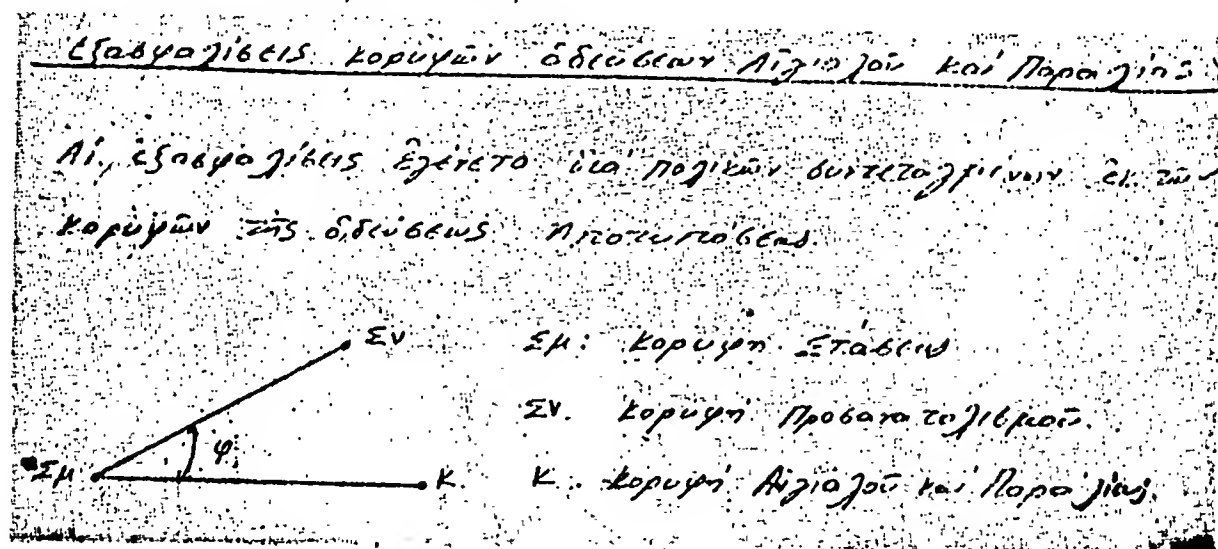 Ἐξασφαλίσεις κορυφῶν ὁδεύσεων Αἰγιαλοῦ καί Παραλίας
Αἱ ἐξασφαλίσεις ἐγένετο διά πολικῶν συντεταγμένων ἐκ τῶν
κορυφῶν τῆς ὁδεύσεως ἀποτυπώσεως.
Σν
Σμ: κορυφή Στάσεως
Σν. κορυφή Προσανατολισμοῦ.
φ
Σμ
Κ.
Κ. κορυφή Αἰγιαλοῦ καί Παραλίας.